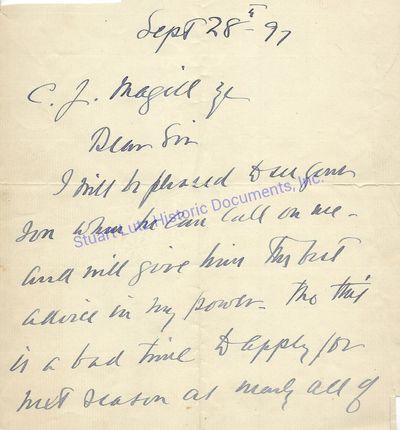 Sept 28th - 97
C. J. Magill
Dear Sir
I will be pleased to see your
son when he can call on me -
and will give him the best
advice in my power - tho this
is a bad time to apply for
next season as nearly all of
Stuart Lutz Historic Documents, Inc.